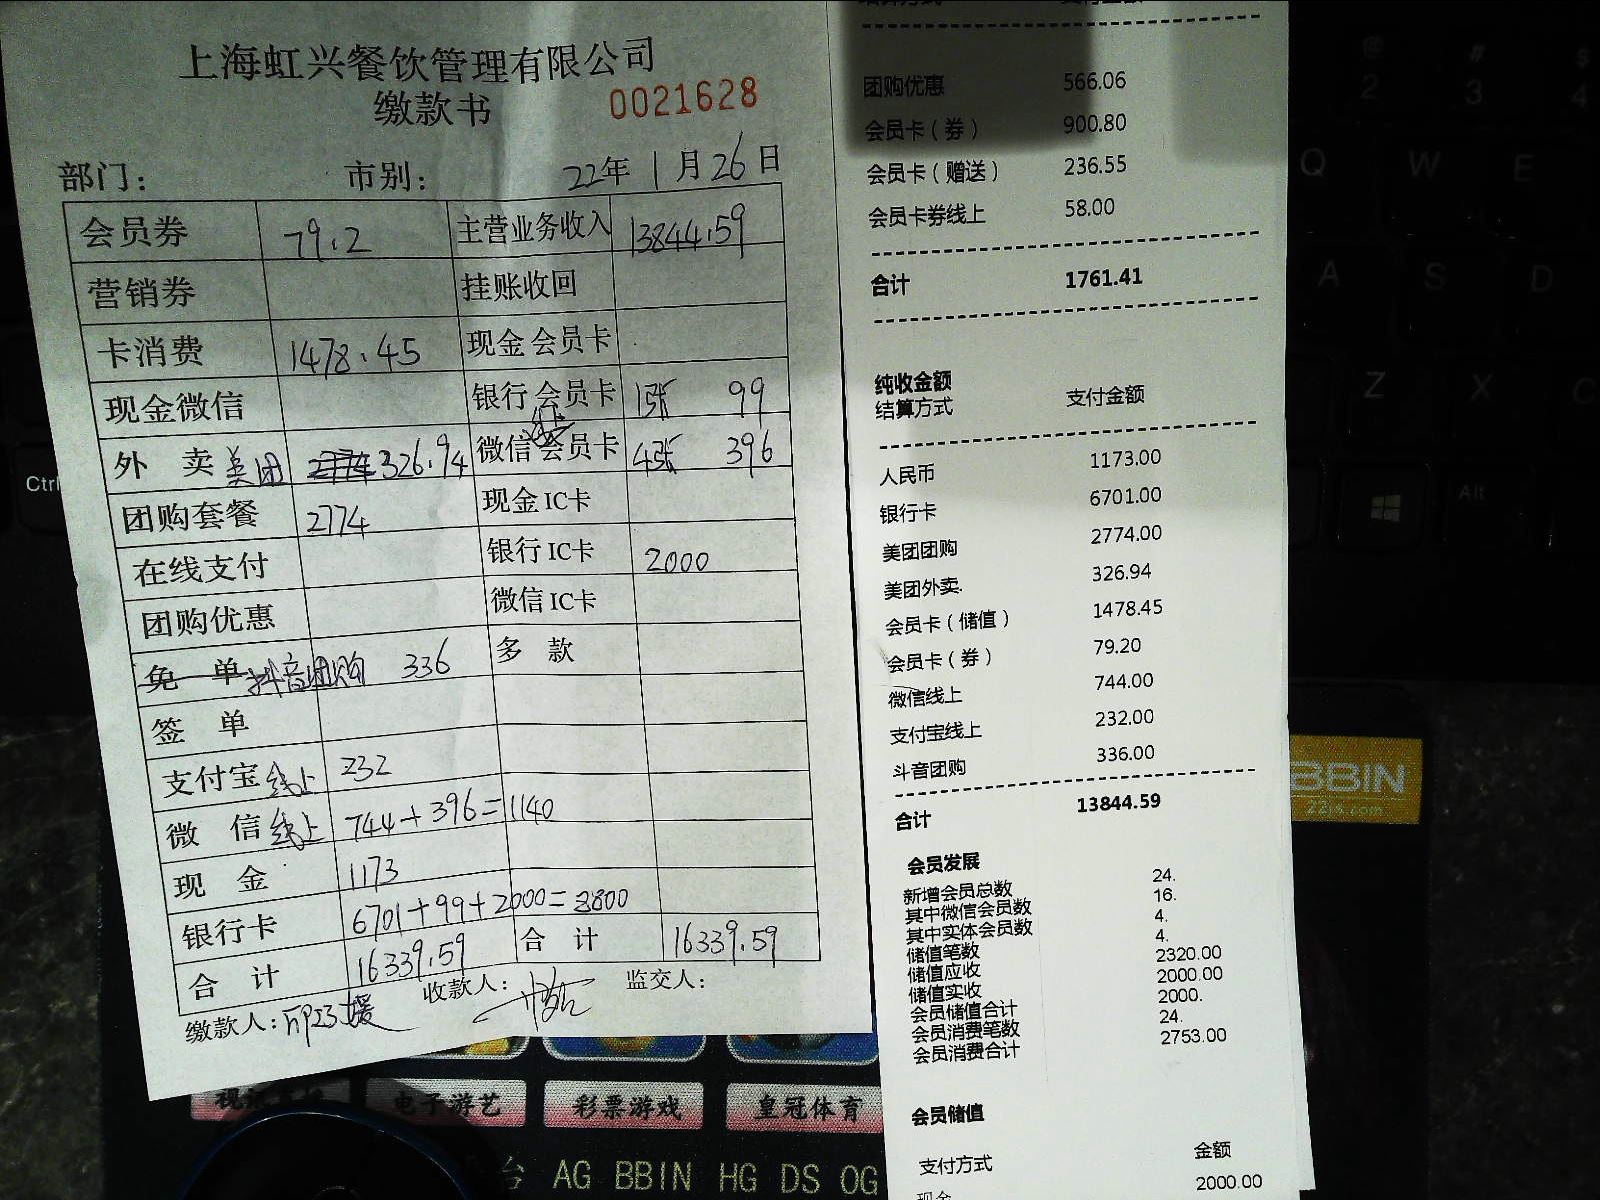 上海虹兴餐饮管理有限公司
缴款书 0021628
部门: 市别: 22年 1月 26日
会员券 79.2 主营业务收入 13844.59
营销券 挂账收回
卡消费 1478.45 现金会员卡
现金微信 银行会员卡 1张 99
外 卖 美团 326.94 微信 会员卡 4张 396
团购套餐 2774 现金IC卡
在线支付 银行IC卡 2000
团购优惠 微信IC卡
免 单 抖音团购 336 多 款
签 单
支付宝线上 232
微 信线上 744+396=1140
现 金 1173
银行卡 6701+99+2000=8800
合 计 16339.59 合 计 16339.59
缴款人: 收款人: 监交人:
团购优惠 566.06
会员卡（券） 900.80
会员卡（赠送） 236.55
会员卡券线上 58.00
合计 1761.41
纯收金额
结算方式 支付金额
人民币 1173.00
银行卡 6701.00
美团团购 2774.00
美团外卖. 326.94
会员卡（储值） 1478.45
会员卡（券） 79.20
微信线上 744.00
支付宝线上 232.00
斗音团购 336.00
合计 13844.59
会员发展
新增会员总数 24.
其中微信会员数 16.
其中实体会员数 4.
储值笔数 4.
储值应收 2320.00
储值实收 2000.00
会员储值合计 2000.
会员消费笔数 24.
会员消费合计 2753.00
会员储值
支付方式 金额
现金 2000.00
电子游艺 彩票游戏 皇冠体育
台 AG BBIN HG DS OG
BBIN
@ 2 # 3 $ 4
Q W E
A S D
Z X C
Ctrl
Alt